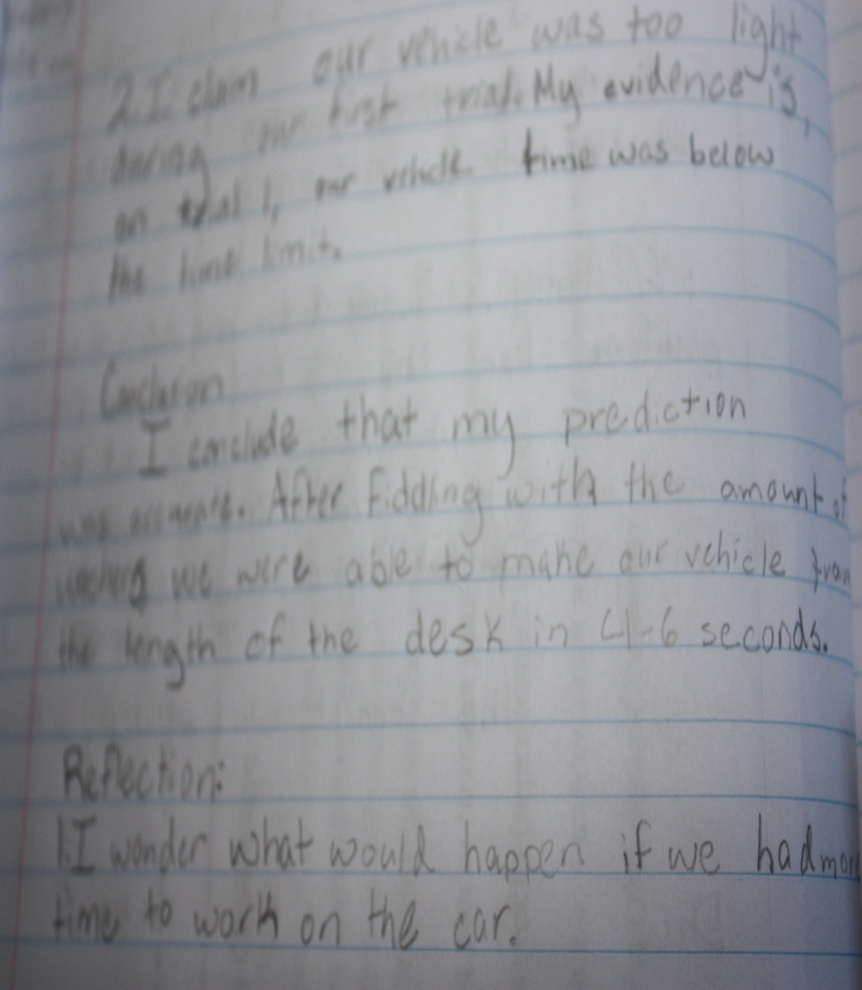 2. I claim our vehicle was too light
during our first trial. My evidence is,
on trial 1, our vehicle time was below
the time limit.
Conclusion
I conclude that my prediction
was accurate. After fiddling with the amount of
washers we were able to make our vehicle
the length of the desk in 4-6 seconds.
Reflection:
1. I wonder what would happen if we had more
time to work on the car.